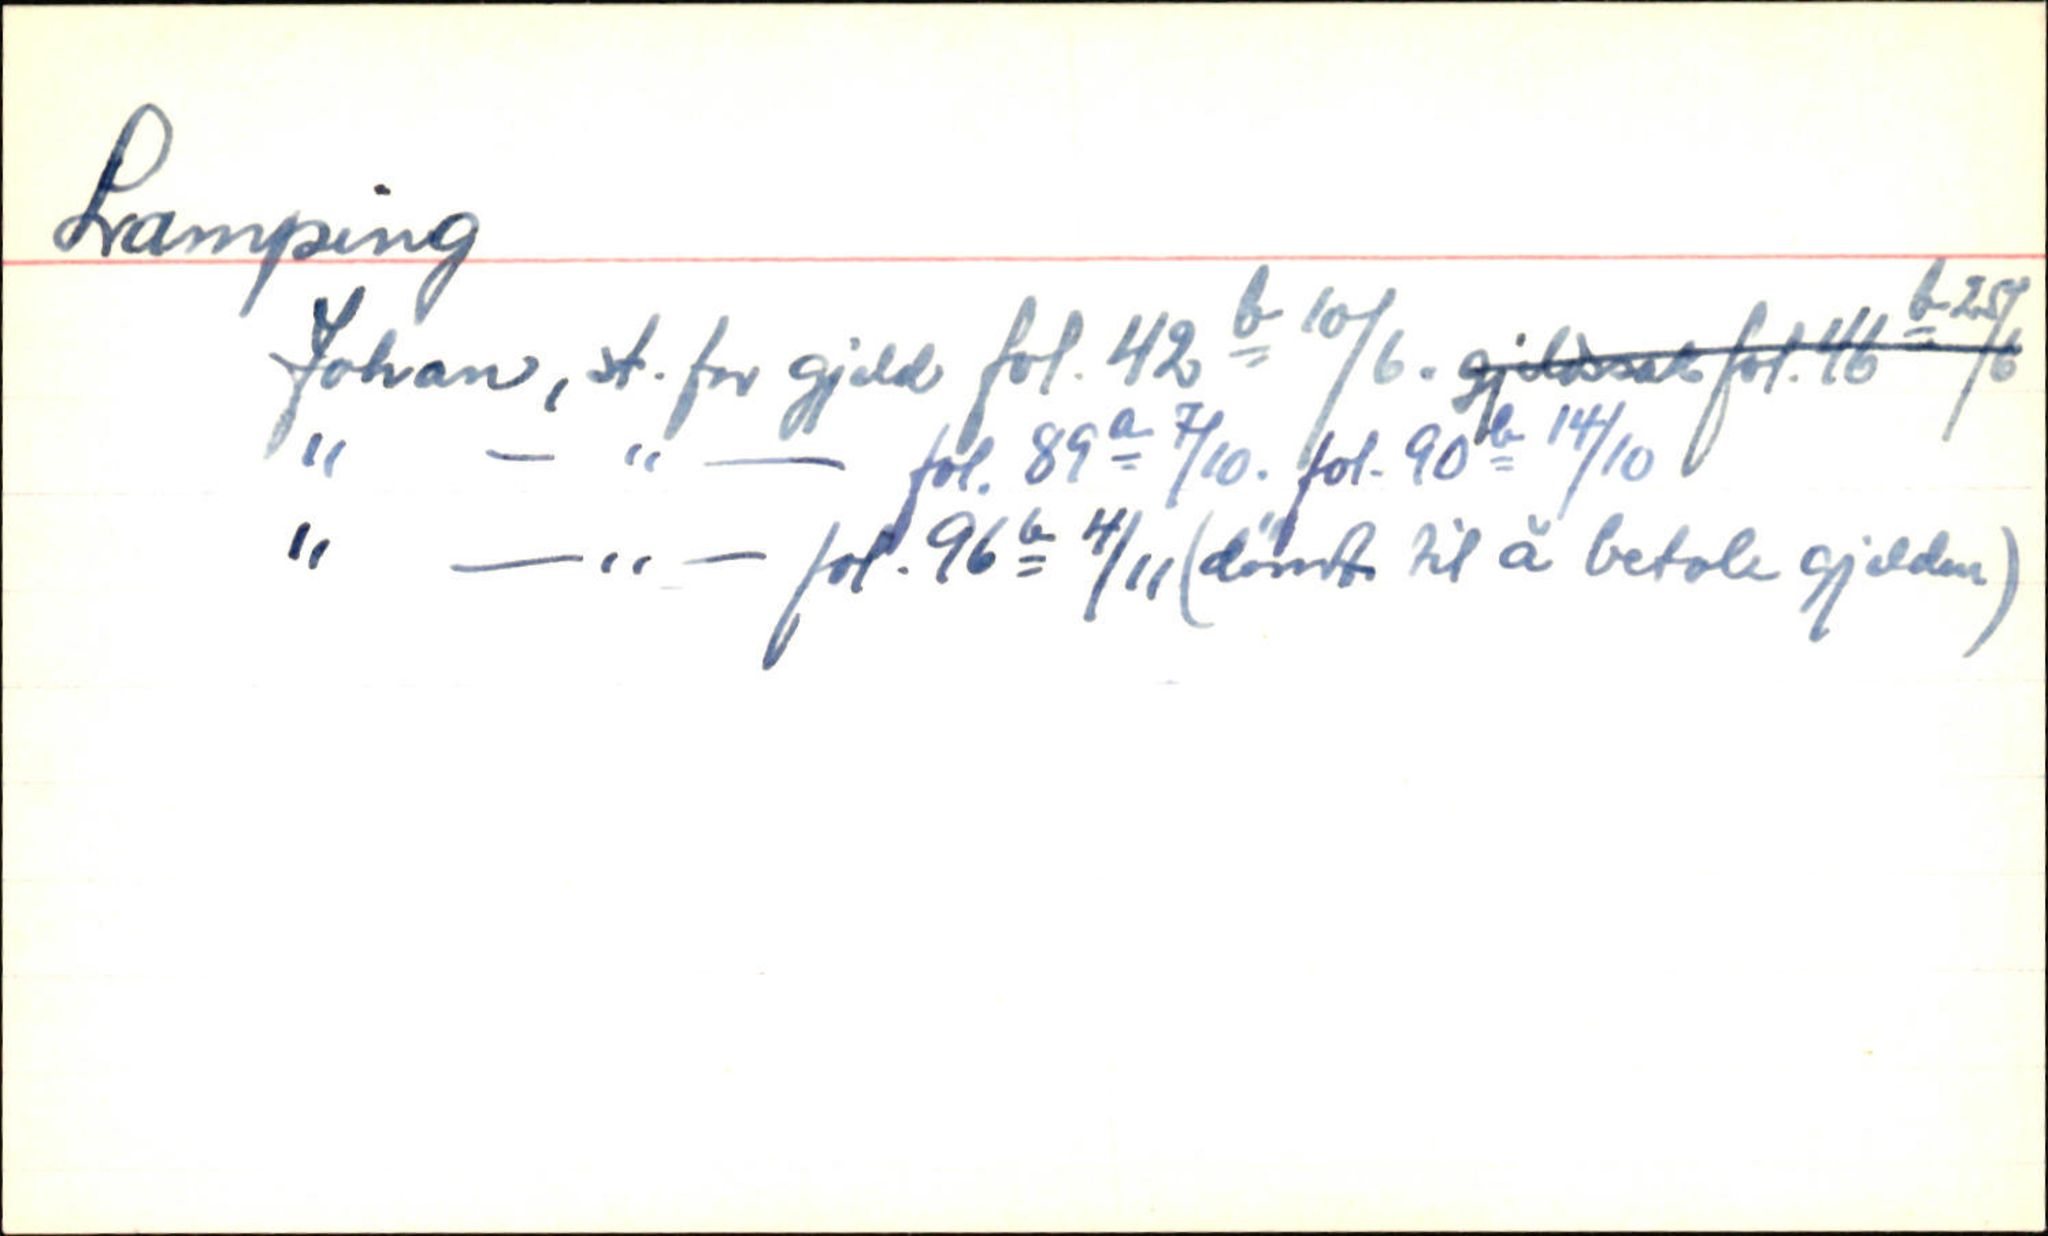 Lamping
Johan, st. for gjeld fol. 42 b 10/6. gjeldssak fol. 46 b 25/6
" — " — fol. 89 a 7/10. fol. 90 b 14/10
" — " — fol. 96 b 4/11 (dömt til å betale gjelden)